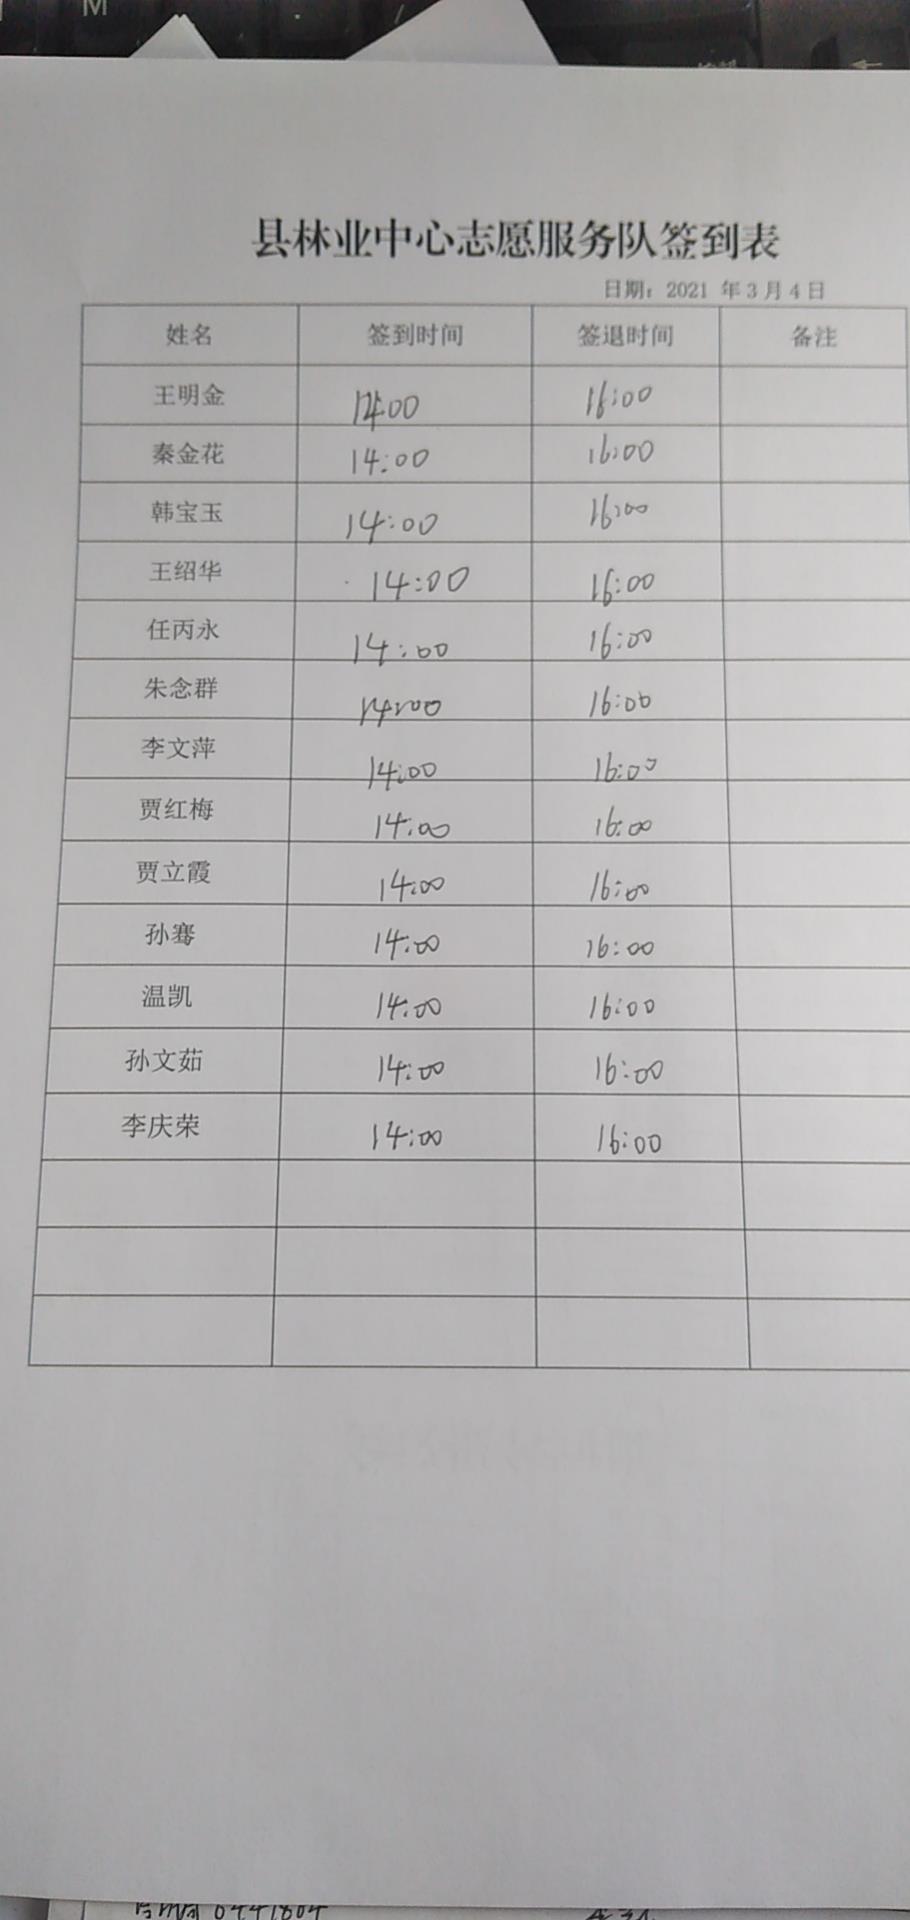 M
县林业中心志愿服务队签到表
日期：2021 年 3 月 4 日
姓名 签到时间 签退时间 备注
王明金 14:00 16:00
秦金花 14:00 16:00
韩宝玉 14:00 16:00
王绍华 14:00 16:00
任丙永 14:00 16:00
朱念群 14:00 16:00
李文萍 14:00 16:00
贾红梅 14:00 16:00
贾立霞 14:00 16:00
孙骞 14:00 16:00
温凯 14:00 16:00
孙文茹 14:00 16:00
李庆荣 14:00 16:00